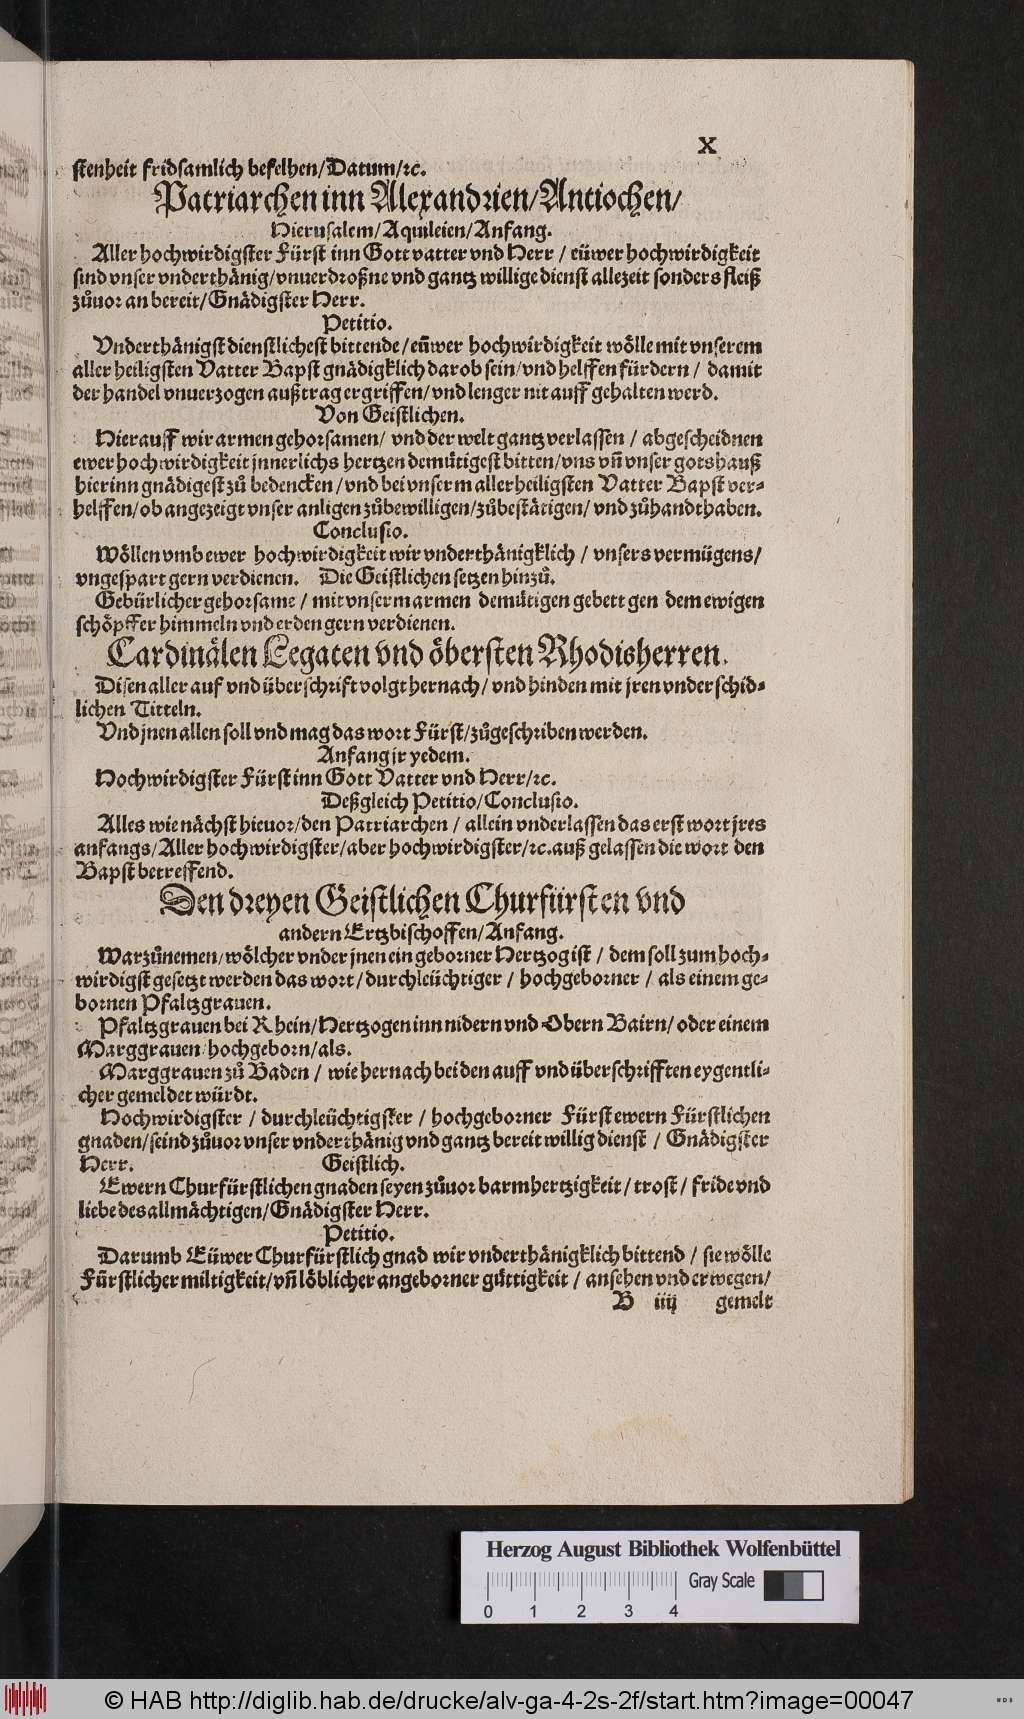 X
stenheit fridsamlich befelhen/Datum/ꝛc.
Patriarchen inn Alexandrien/Antiochen/
Hierusalem/Aquileien/Anfang.
Aller hochwirdigster Fürst inn Gott vatter vnd Herr / eüwer hochwirdigkeit
sind vnser vnderthänig/vnuerdroßne vnd gantz willige dienst allezeit sonders fleiß
zůuor an bereit/Gnädigster Herr.
Petitio.
Vnderthänigst dienstlichest bittende/eüwer hochwirdigkeit wölle mit vnserem
aller heiligsten Vatter Bapst gnädigklich darob sein/vnd helffen fürdern / damit
der handel vnuerzogen außtrag ergriffen/vnd lenger nit auff gehalten werd.
Von Geistlichen.
Hierauff wir armen gehorsamen/ vnd der welt gantz verlassen / abgescheidnen
ewer hochwirdigkeit jnnerlichs hertzen demütigest bitten/vns vñ vnser gotshauß
hierinn gnädigest zů bedencken/vnd bei vnserm allerheiligsten Vatter Bapst ver-
helffen/ob angezeigt vnser anligen zůbewilligen/zůbestätigen/ vnd zůhandthaben.
Conclusio.
Wöllen vmb ewer hochwirdigkeit wir vnderthänigklich / vnsers vermügens/
vngespart gern verdienen. Die Geistlichen setzen hinzů.
Gebürlicher gehorsame / mit vnserm armen demütigen gebett gen dem ewigen
schöpffer himmeln vnd erden gern verdienen.
Cardinälen Legaten vnd öbersten Rhodisherren.
Disen aller auf vnd überschrift volgt hernach/ vnd hinden mit jren vnderschid-
lichen Titteln.
Vnd jnen allen soll vnd mag das wort Fürst/zůgeschriben werden.
Anfang jr yedem.
Hochwirdigster Fürst inn Gott Vatter vnd Herr/ꝛc.
Deßgleich Petitio/Conclusio.
Alles wie nächst hieuor/den Patriarchen / allein vnderlassen das erst wort jres
anfangs/Aller hochwirdigster/aber hochwirdigster/ꝛc.auß gelassen die wort den
Bapst betreffend.
Den dreyen Geistlichen Churfürsten vnd
andern Ertzbischoffen/Anfang.
Warzůnemen/wölcher vnder jnen ein geborner Hertzog ist / dem soll zum hoch-
wirdigst gesetzt werden das wort/durchleüchtiger / hochgeborner / als einem ge-
bornen Pfaltzgrauen.
Pfaltzgrauen bei Rhein/Hertzogen inn nidern vnd Obern Bairn/oder einem
Marggrauen/hochgeborn/als.
Marggrauen zů Baden / wie hernach bei den auff vnd überschrifften eygentli-
cher gemeldet würdt.
Hochwirdigster / durchleüchtigster / hochgeborner Fürst ewern Fürstlichen
gnaden/seind zůuor vnser vnderthänig vnd gantz bereit willig dienst / Gnädigster
Herr. Geistlich.
Ewern Churfürstlichen gnaden seyen zůuor barmhertzigkeit/trost/fride vnd
liebe des allmächtigen/Gnädigster Herr.
Petitio.
Darumb Eüwer Churfürstlich gnad wir vnderthänigklich bittend / sie wölle
Fürstlicher miltigkeit/vñ löblicher angeborner güttigkeit / ansehen vnd erwegen/
B iiij gemelt
Herzog August Bibliothek Wolfenbüttel
Gray Scale
0 1 2 3 4
© HAB http://diglib.hab.de/drucke/alv-ga-4-2s-2f/start.htm?image=00047